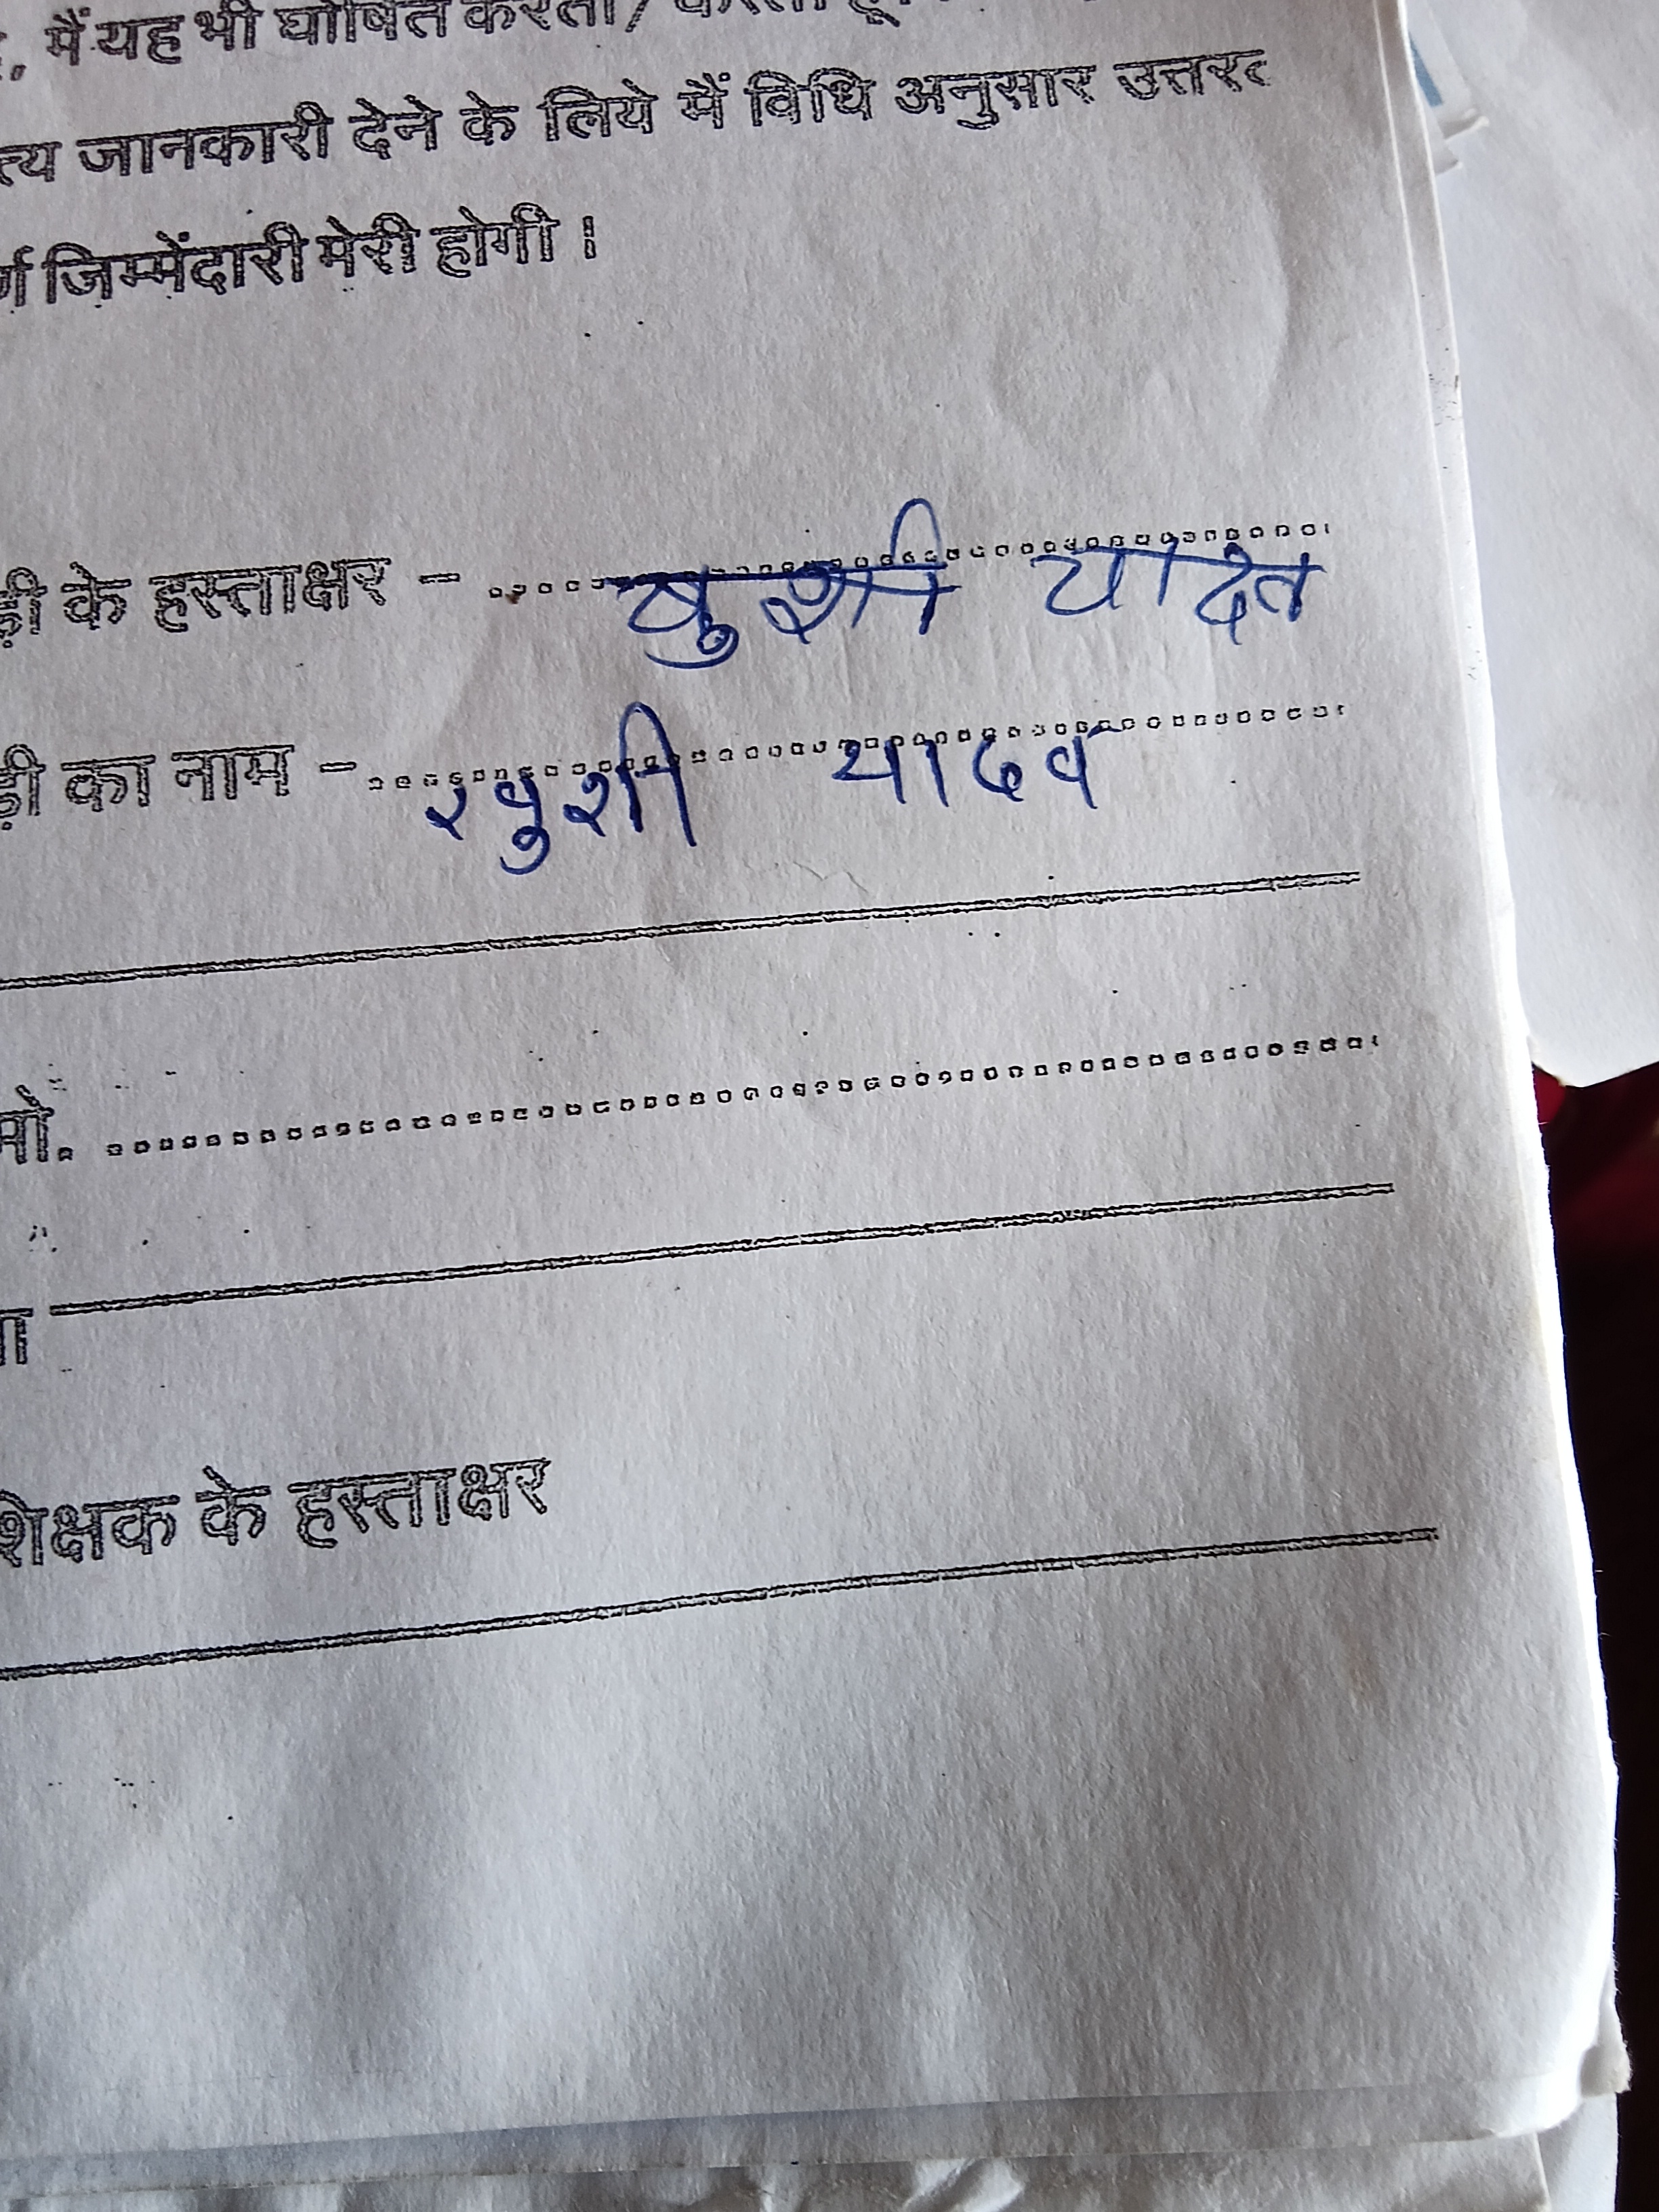 मैं यह भी घोषित करता/ करती हूँ
जानकारी देने के लिये मैं विधि अनुसार
जिम्मेंदारी मेरी होगी ।
के हस्ताक्षर - खुशी यादव
का नाम - खुशी यादव
मो.
शिक्षक के हस्ताक्षर